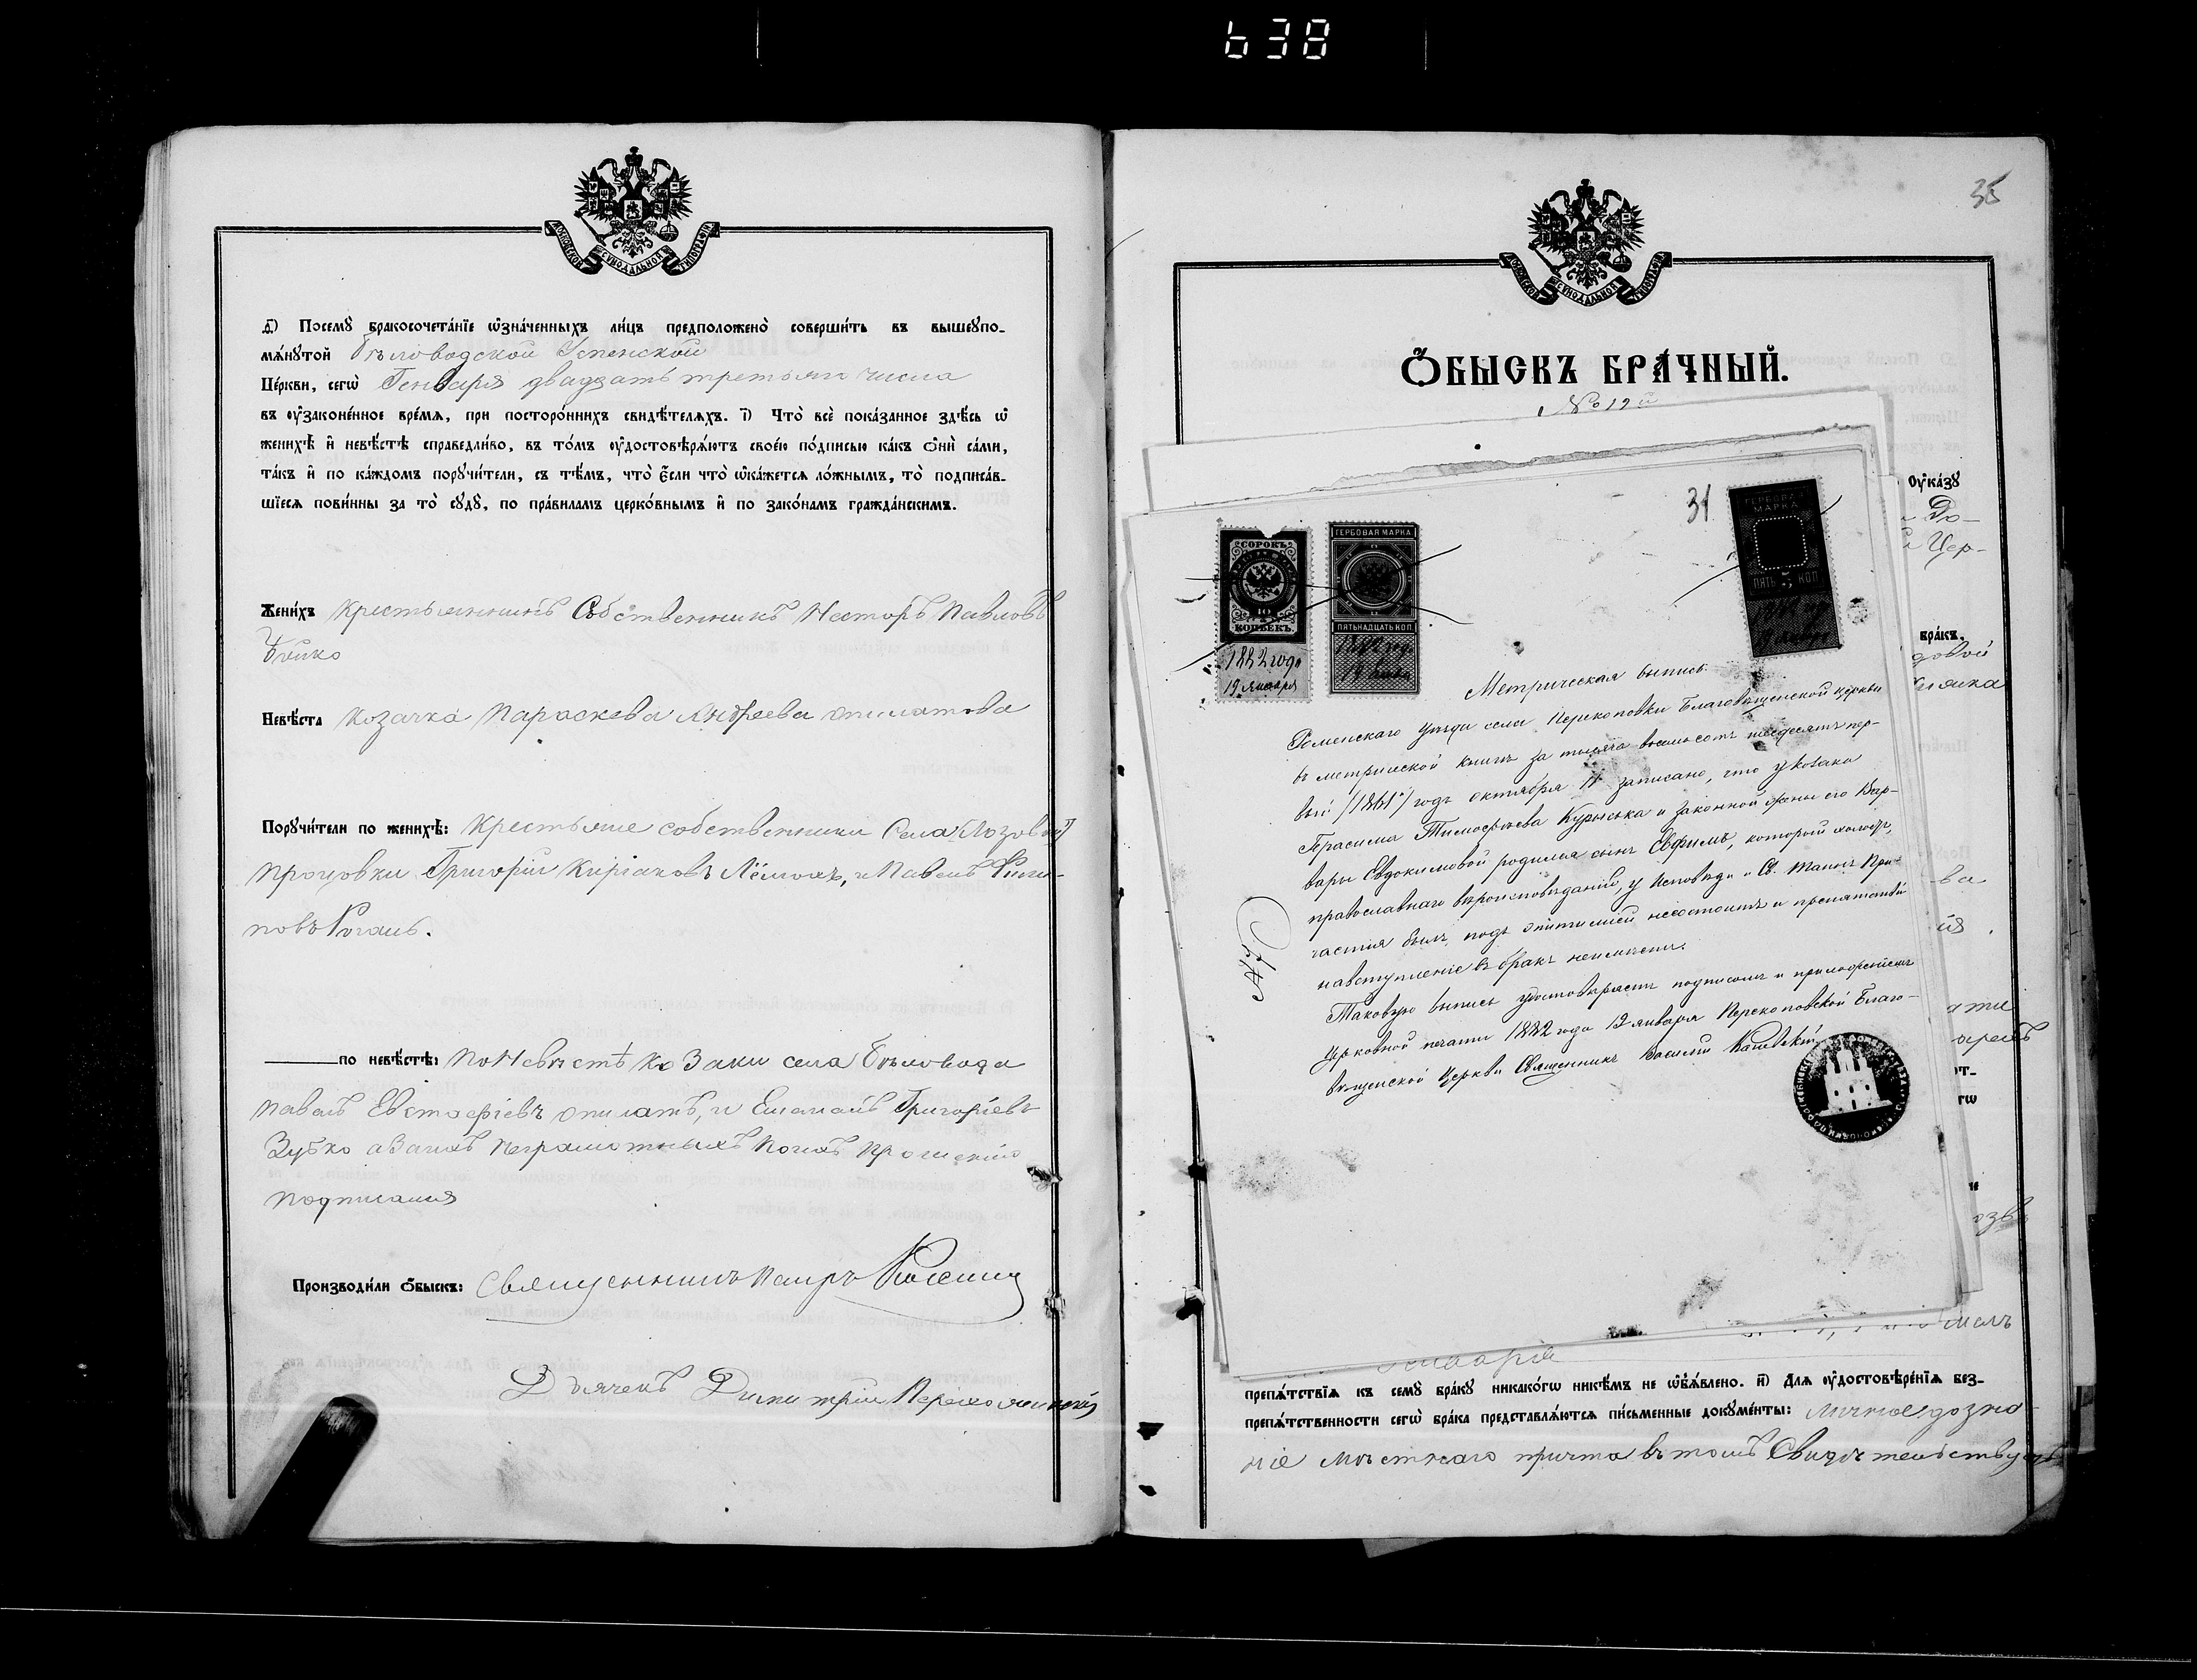 638
МОСКОВСКОЙ СУНОДАЛЬНОЙ ТИПОГРАФІИ
д҃) Посемꙋ бракосочетаніе ѡзначенныхъ лицъ предположено совершить въ вышеꙋпо-
мянꙋтой Бѣловодской Успенской
Церкви, сегѡ Генваря двадцать третьяго числа
въ ѹзаконенное время, при постороннихъ свидѣтеляхъ. і҃) Что все показанное здѣсь ѡ
женихѣ и невѣстѣ справедливо, въ томъ ѹдостовѣряютъ своею подписью какъ ѻни сами,
такъ и по каждомъ порꙋчители, съ тѣмъ, что если что ѡкажется ложнымъ, то подписав-
шіеся повинны за то сꙋдꙋ, по правиламъ церковнымъ и по законамъ гражданскимъ.
Женихъ Крестьянинъ Собственникъ Несторъ Павловъ
Бойко
Невѣста Козачка Параскева Андреева Опилатова
Порꙋчители по женихѣ: Крестьяне собственники Села Лозовой
Процовки Григорій Киріаковъ, и Павелъ Филип-
повъ
по невѣстѣ: По Невѣстѣ Козаки села Бѣловода
Павелъ Евстафіевъ Опилатъ, и Григоріевъ
Зубко а за нихъ неграмотныхъ по ихъ прошенію
подписался
Производили ѻбыскъ: Священникъ Петръ
Дьячекъ Димитрій
35
МОСКОВСКОЙ СУНОДАЛЬНОЙ ТИПОГРАФІИ
ѺБЫСКЪ БРАЧНЫЙ.
№ 12й
ѹказꙋ
До-
Цер-
бракъ,
довой
31
СОРОКЪ
40
КОПѢЕКЪ.
1882 года
19 января
ГЕРБОВАЯ МАРКА
ПЯТЬНАДЦАТЬ КОП.
1882 год.
19 января
ГЕРБОВАЯ
МАРКА
ПЯТЬ 5 КОП
Метрическая выпись.
Роменскаго Уѣзда села Перекоповки Благовѣщенской церкви
въ метрической книгѣ за тысяча восемьсотъ шестдесятъ пер-
вый /1861/ годъ октября 11 записано, что у козака
Герасима Тимофѣева Курыська и законной жены его Вар-
вары Евдокимовой родился сынъ Евфимъ, который холостъ,
православнаго вѣроисповѣданія, у Исповѣди и Св. Таинъ При-
частія былъ, подъ эпитиміей несостоитъ и препятствій
на вступленіе въ бракъ неимѣетъ.
Таковую выпись удостовѣряетъ подписомъ и приложеніемъ
церковной печати 1882 года 12 января Перекоповской Благо-
вѣщенской Церкви Священникъ Василій
препятствія къ семꙋ бракꙋ никакогѡ никѣмъ не ѡбъявлено. и҃) Для ѹдостовѣренія без-
препятственности сегѡ брака представляются письменные докꙋменты: личное дозна-
ніе мѣстнаго причта въ томъ Свидѣтельствуетъ